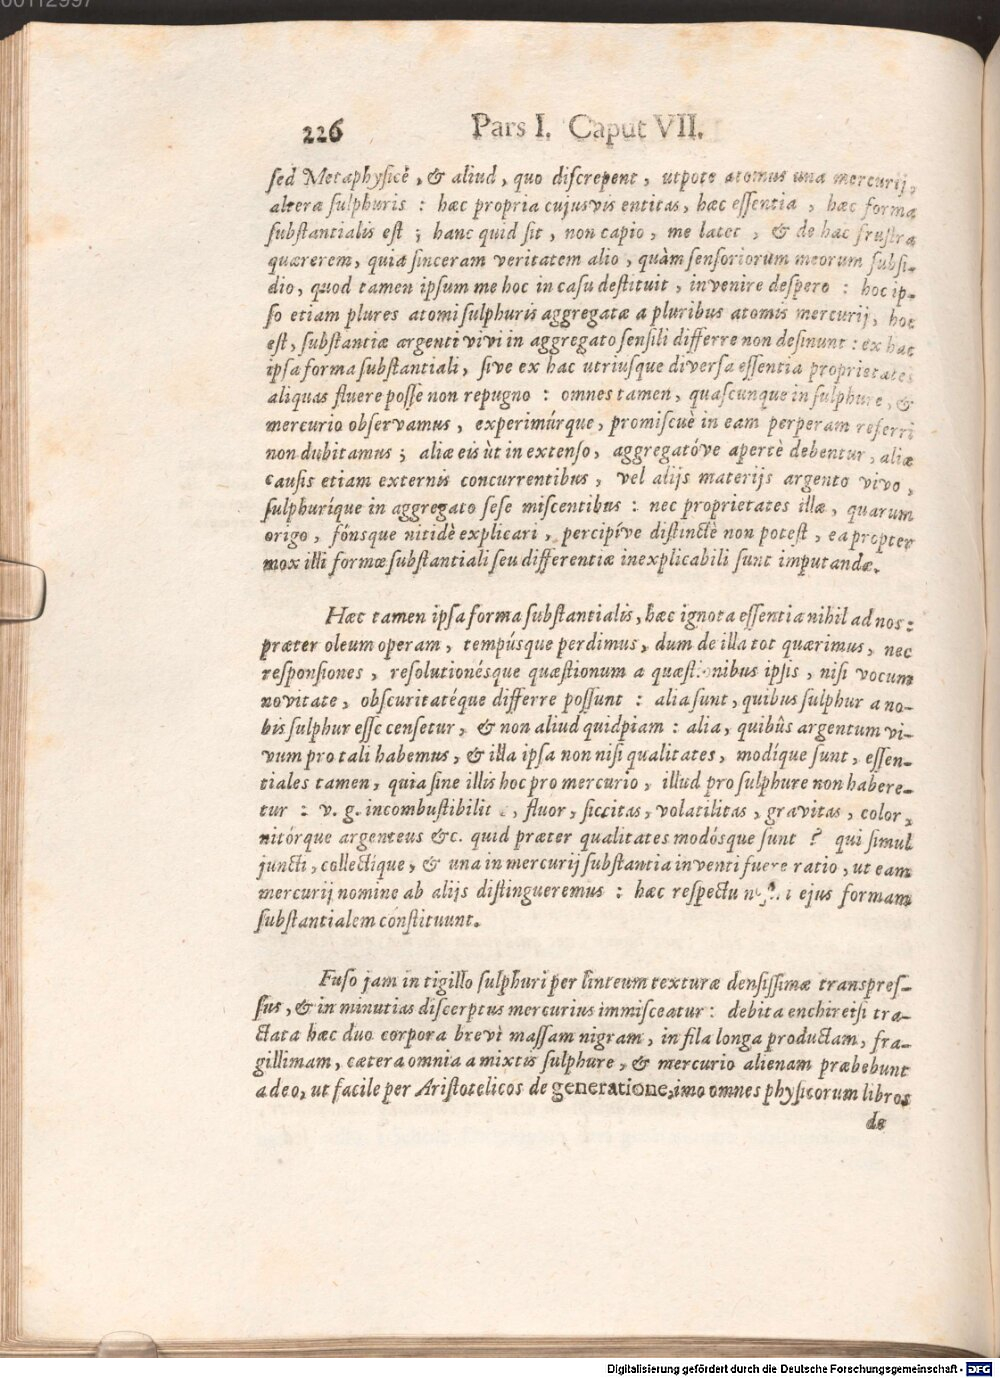 226 Pars I. Caput VII.
sed Metaphysicè, & aliud, quo discrepent, utpote atomus una mercurij,
altera sulphuris : hæc propria cujusvis entitas, hæc essentia, hæc forma
substantialis est ; hanc quid sit, non capio, me latet, & de hac frustra
quærerem, quia sinceram veritatem alio, quàm sensoriorum meorum subsi-
dio, quod tamen ipsum me hoc in casu destituit, invenire despero : hoc ip-
so etiam plures atomi sulphuris aggregatæ a pluribus atomis mercurij, hoc
est, substantiæ argenti vivi in aggregato sensili differre non desinunt : ex hac
ipsa forma substantiali, sive ex hac utriusque diversa essentia proprietates
aliquas fluere posse non repugno : omnes tamen, quascunque in sulphure, &
mercurio observamus, experimúrque, promiscuè in eam perperam referri
non dubitamus ; aliæ eis ùt in extenso, aggregatóve apertè debentur, aliæ
causis etiam externis concurrentibus, vel alijs materijs argento vivo,
sulphuríque in aggregato sese miscentibus : nec proprietates illæ, quarum
origo, fónsque nitidè explicari, percipíve distinctè non potest, eapropter
mox illi formæ substantiali seu differentiæ inexplicabili sunt imputandæ.
Hæc tamen ipsa forma substantialis, hæc ignota essentia nihil ad nos :
præter oleum operam, tempúsque perdimus, dum de illa tot quærimus, nec
responsiones, resolutionésque quæstionum a quæstionibus ipsis, nisi vocum
novitate, obscuritatéque differre possunt : alia sunt, quibus sulphur a no-
bis sulphur esse censetur, & non aliud quidpiam : alia, quibûs argentum vi-
vum pro tali habemus, & illa ipsa non nisi qualitates, modíque sunt, essen-
tiales tamen, quia sine illis hoc pro mercurio, illud pro sulphure non habere-
tur : v. g. incombustibilit , fluor, siccitas, volatilitas, gravitas, color,
nitórque argenteus &c. quid præter qualitates modósque sunt ? qui simul
juncti, collectíque, & una in mercurij substantia inventi fuere ratio, ut eam
mercurij nomine ab alijs distingueremus : hæc respectu ejus formam
substantialem constituunt.
Fuso jam in tigillo sulphuri per linteum texturæ densissimæ transpres-
sus, & in minutias discerptus mercurius immisceatur : debita enchireisi tra-
ctata hæc duo corpora brevì massam nigram, in fila longa productam, fra-
gillimam, cætera omnia a mixtis sulphure, & mercurio alienam præbebunt
adeo, ut facile per Aristotelicos de generatione, imo omnes physicorum libros
de
Digitalisierung gefördert durch die Deutsche Forschungsgemeinschaft - DFG